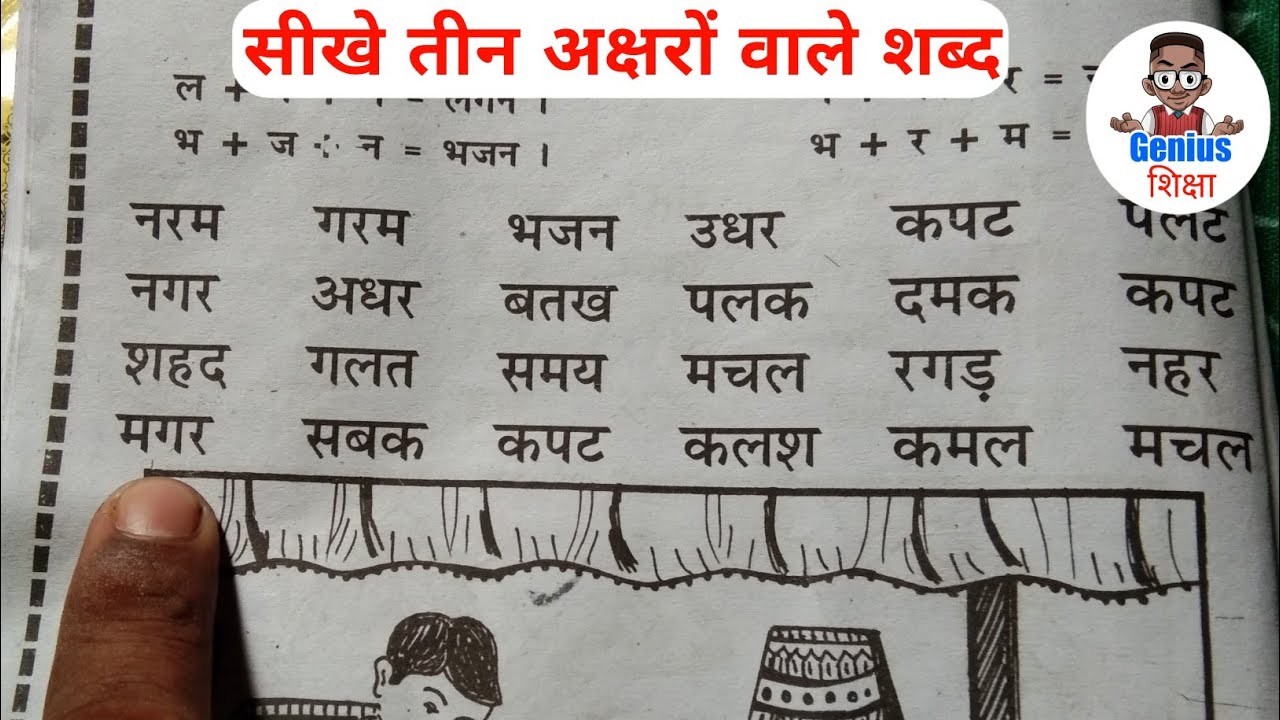 सीखे तीन अक्षरों वाले शब्द
ल + = लगन ।
र =
भ + ज + न = भजन ।
भ + र + म =
Genius
शिक्षा
नरम गरम भजन उधर कपट पलट
नगर अधर बतख पलक दमक कपट
शहद गलत समय मचल रगड़ नहर
मगर सबक कपट कलश कमल मचल